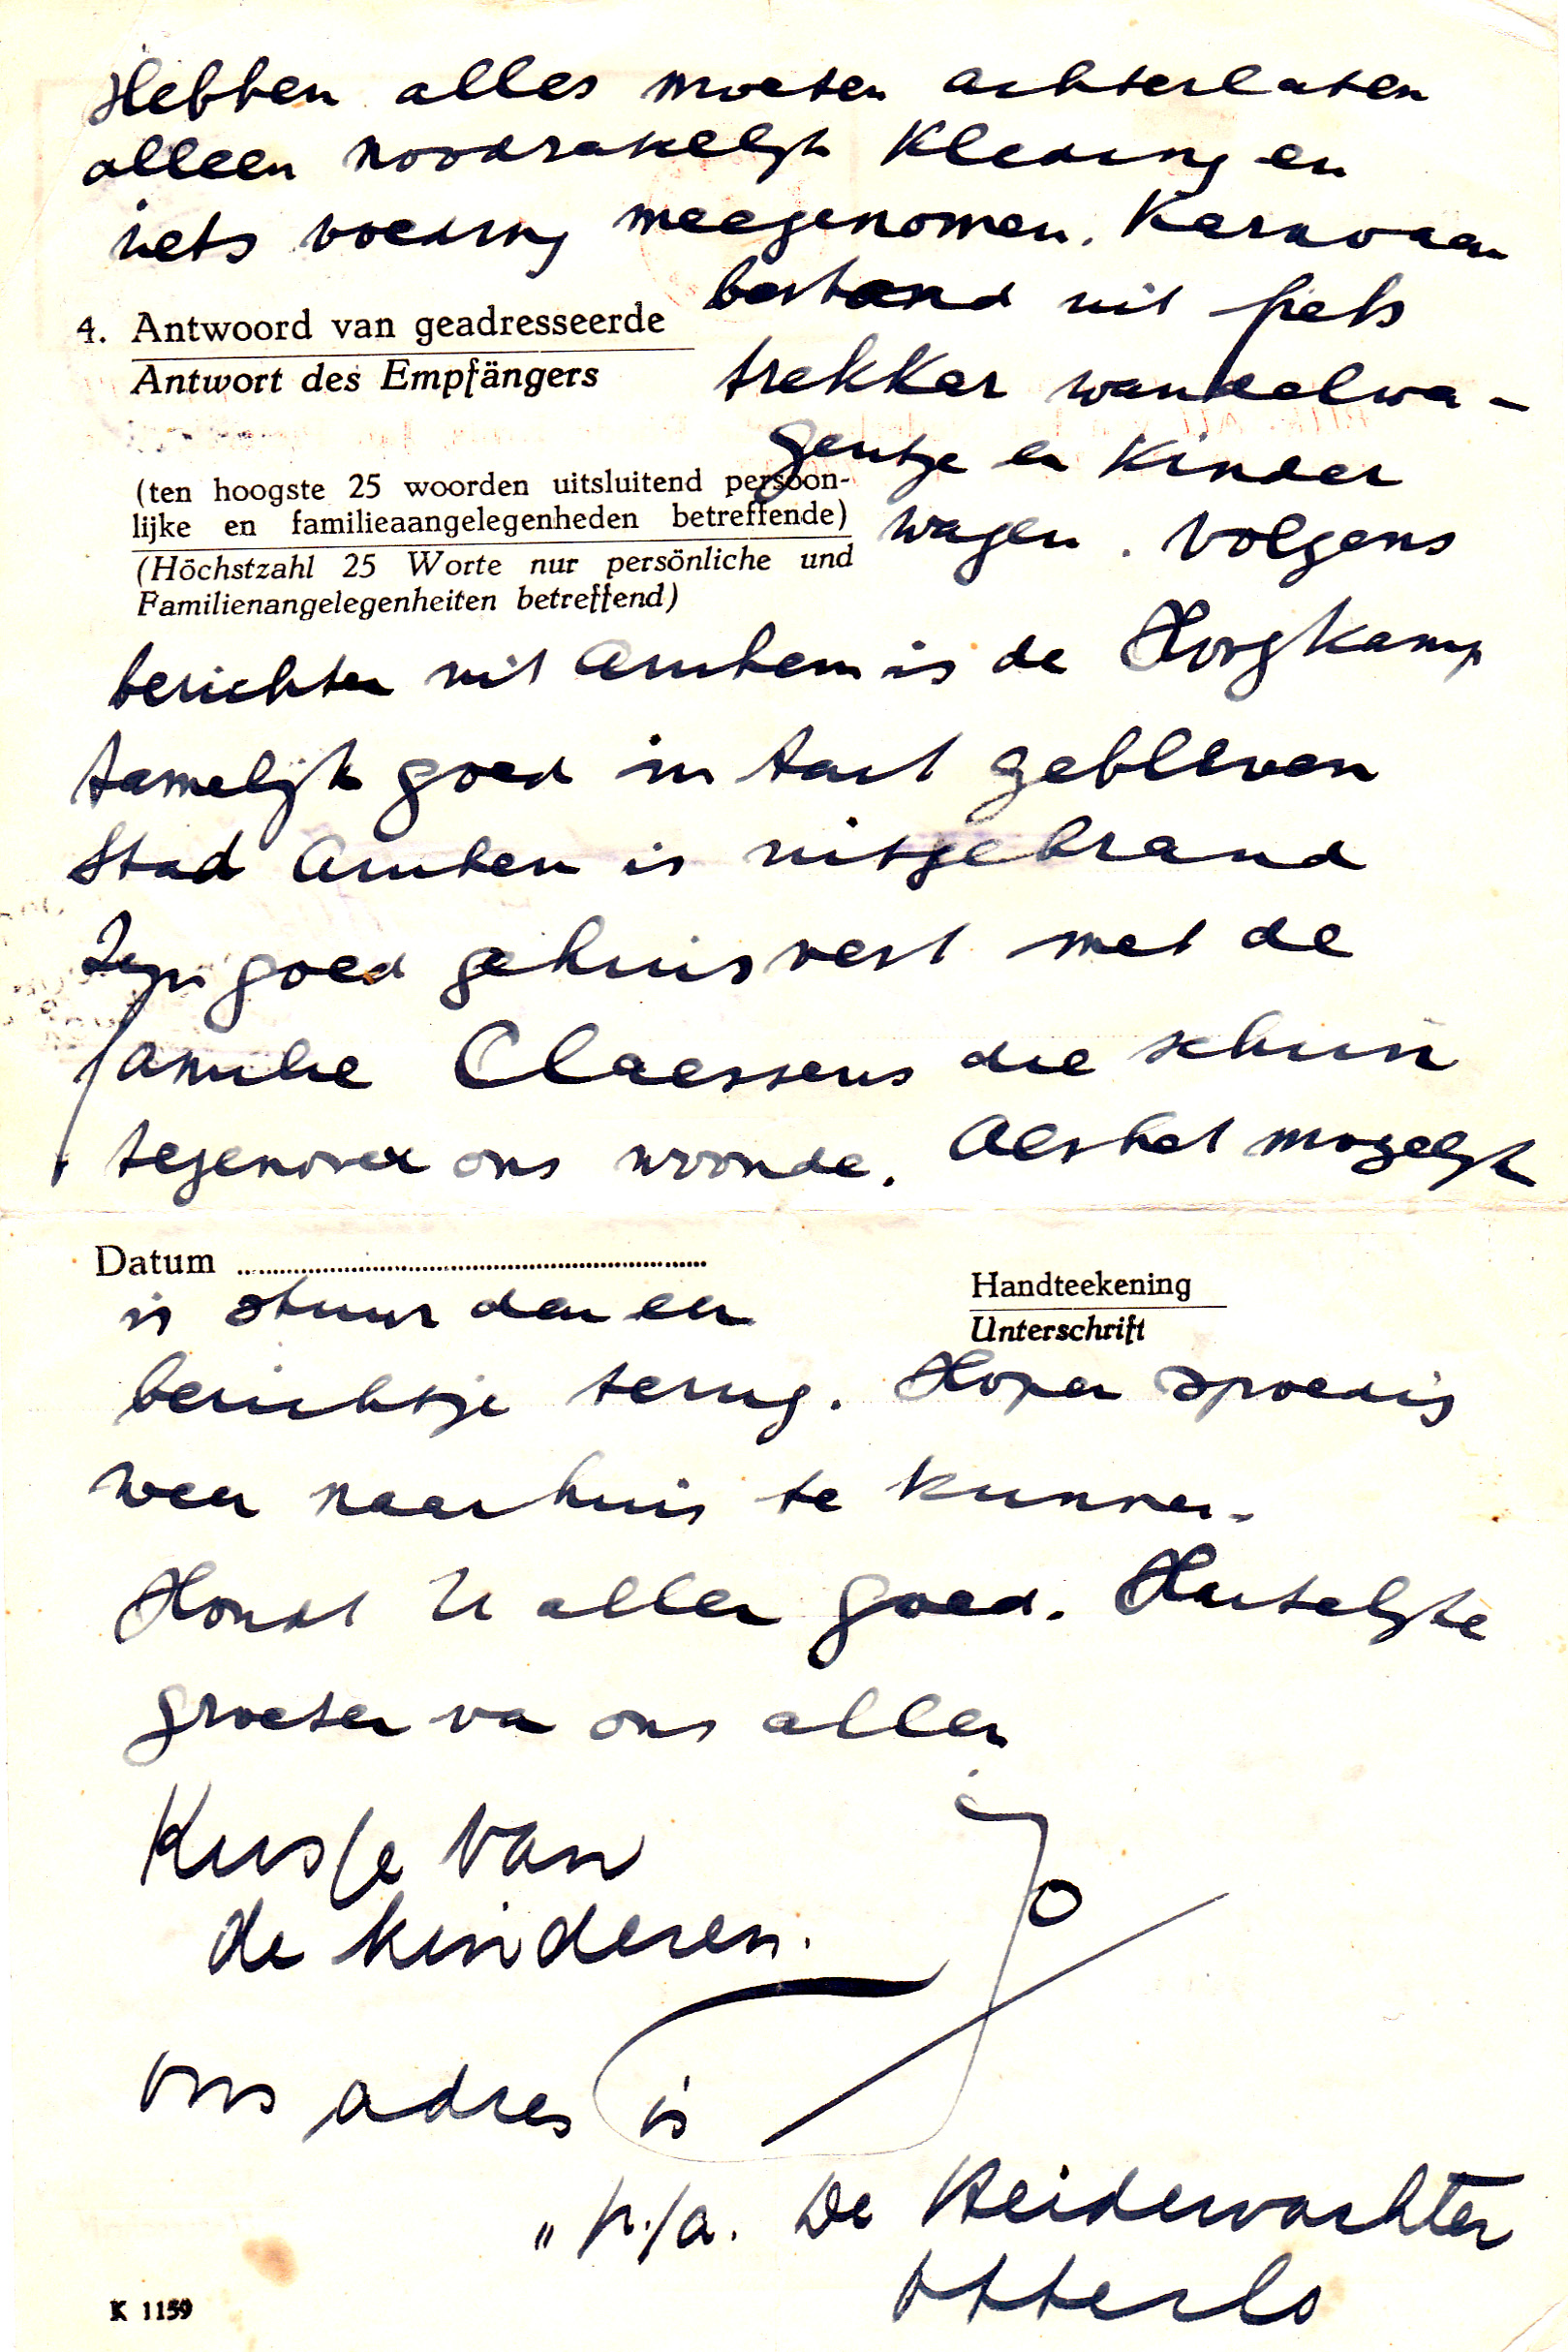 Hebben alles moeten achterlaten
alleen noodzakelijk Kleding en
iets voeding meegenomen. Karavaan
bestond uit fiets
4. Antwoord van geadresseerde
Antwort des Empfängers
trekker wandelwa-
gentje en Kinder
(ten hoogste 25 woorden uitsluitend persoon-
lijke en familieaangelegenheden betreffende)
wagen. Volgens
(Höchstzahl 25 Worte nur persönliche und
Familienangelegenheiten betreffend)
berichten uit Arnhem is de Hoogkamp
tamelijk goed in tact gebleven
Stad Arnhem is uitgebrand
Zijn goed gehuisvest met de
familie Claessens die schuin
tegenover ons woonde. Als het mogelijk
Datum
is stuur dan een
Handteekening
Unterschrift
berichtje terug. Hopen spoedig
weer naar huis te kunnen.
Houdt U allen goed. Hartelijke
groeten van ons allen
Jo
Kusje van
de kinderen.
ons adres is
" p./a. De Heidewachter
Otterlo
K 1159